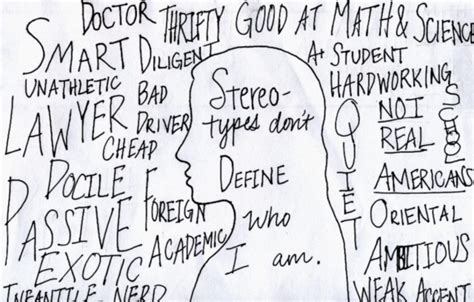 DOCTOR THRIFTY GOOD AT MATH & SCIENCE
SMART DILIGENT
A+ STUDENT
UNATHLETIC
HARDWORKING
LAWYER BAD DRIVER
CHEAP
Stereo-
types don't
DEFINE
Who
I am.
QUIET
NOT
REAL
AMERICANS
DOCILE
FOREIGN
PASSIVE
ACADEMIC
EXOTIC
INFANTILE NERD
ORIENTAL
AMBITIOUS
WEAK ACCENT